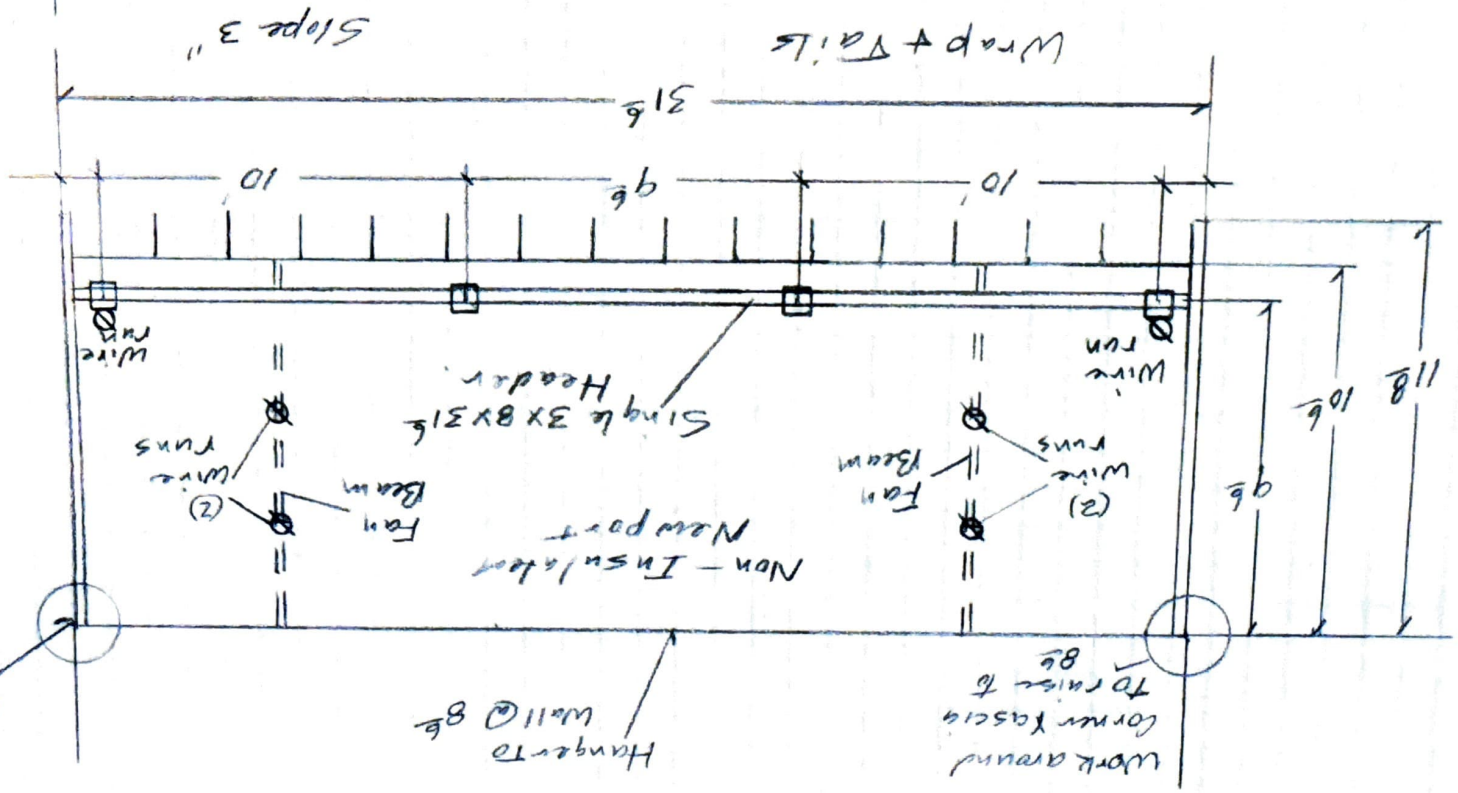 Work around
Corner Fascia
To raise to
8⁶
Hanger To
Wall @ 8⁶
Non-Insulated
Newport
(2)
wire
runs
Fan
Beam
Fan
Beam
(2)
wire
runs
9⁶
10⁶
11⁸
Single 3x8x31⁶
Header
Wire
run
Wire
run
10
9⁶
10
31⁶
Wrap & Tails
Slope 3"